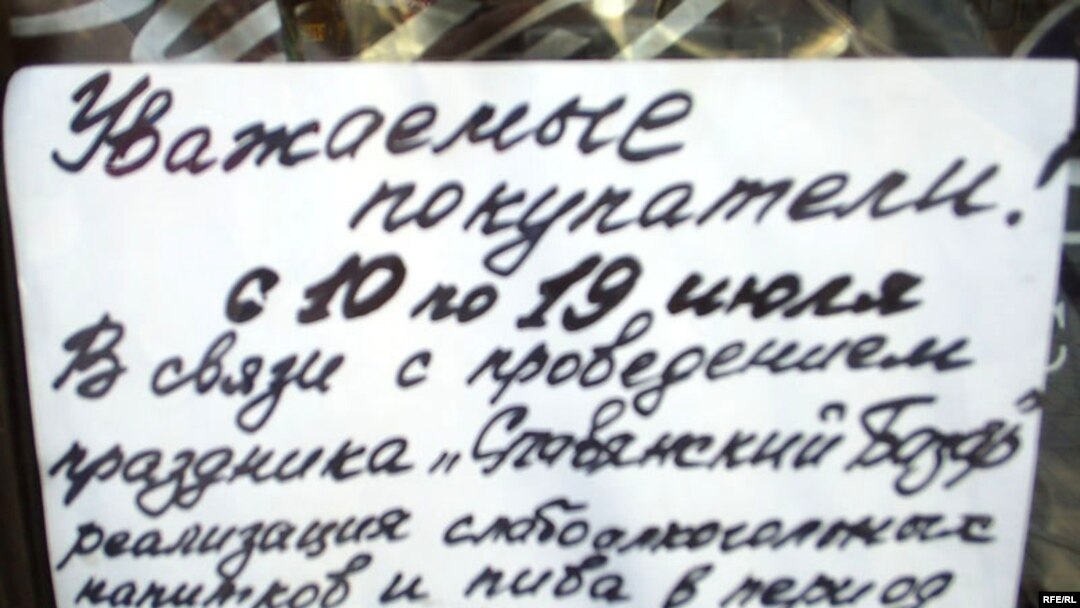 Уважаемые
покупатели!
с 10 по 19 июля
В связи с проведением
праздника „Славянский Базар"
реализация слабоалкогольных
напитков и пива в период
RFE/RL